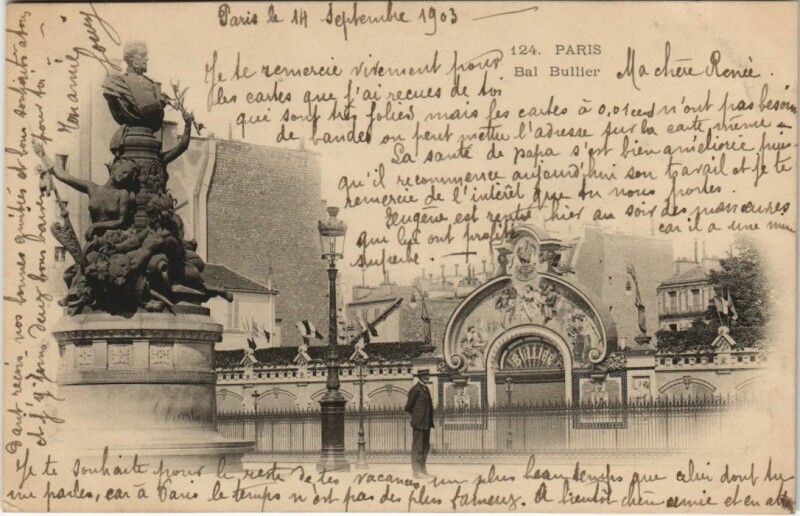 Paris le 14 Septembre 1903
124. PARIS
Bal Bullier
Ma chère Renée.
Je te remercie vivement pour
les cartes que j'ai reçues de toi
qui sont très jolies mais les cartes à 0,01 cent n'ont pas besoin
de bandes on peut mettre l'adresse sur la carte même
La santé de papa s'est bien améliorée puis-
qu'il recommence aujourd'hui son travail et je te
remercie de l'intérêt que tu nous portes.
Eugène est rentré hier au soir des manœuvres
qui lui ont profité car il a une mine
superbe.
BULLIER
Je te souhaite pour le reste de tes vacances un plus beau temps que celui dont tu
me parles, car à Paris le temps n'est pas des plus fameux. A bientôt chère amie et en att
dant reçois nos bonnes amitiés et bons souhaits
et j'y joins deux bons baisers pour toi
Ton amie